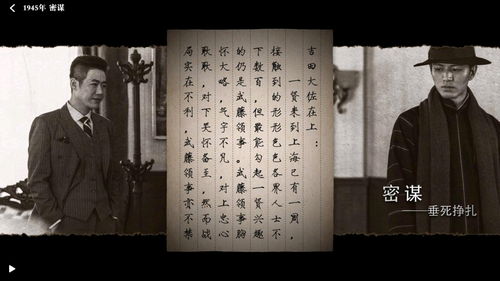 1945年 密谋
吉田大佐在上：
一贤来到上海已有一周，
接触到的形形色色各界人士不
下数百，但最能勾起一贤兴趣
的仍是武藤领事。武藤领事胸
怀大略，气宇不凡，对上忠心
耿耿，对下关怀备至，然而战
局实在不利，武藤领事亦不禁
密谋
——垂死挣扎